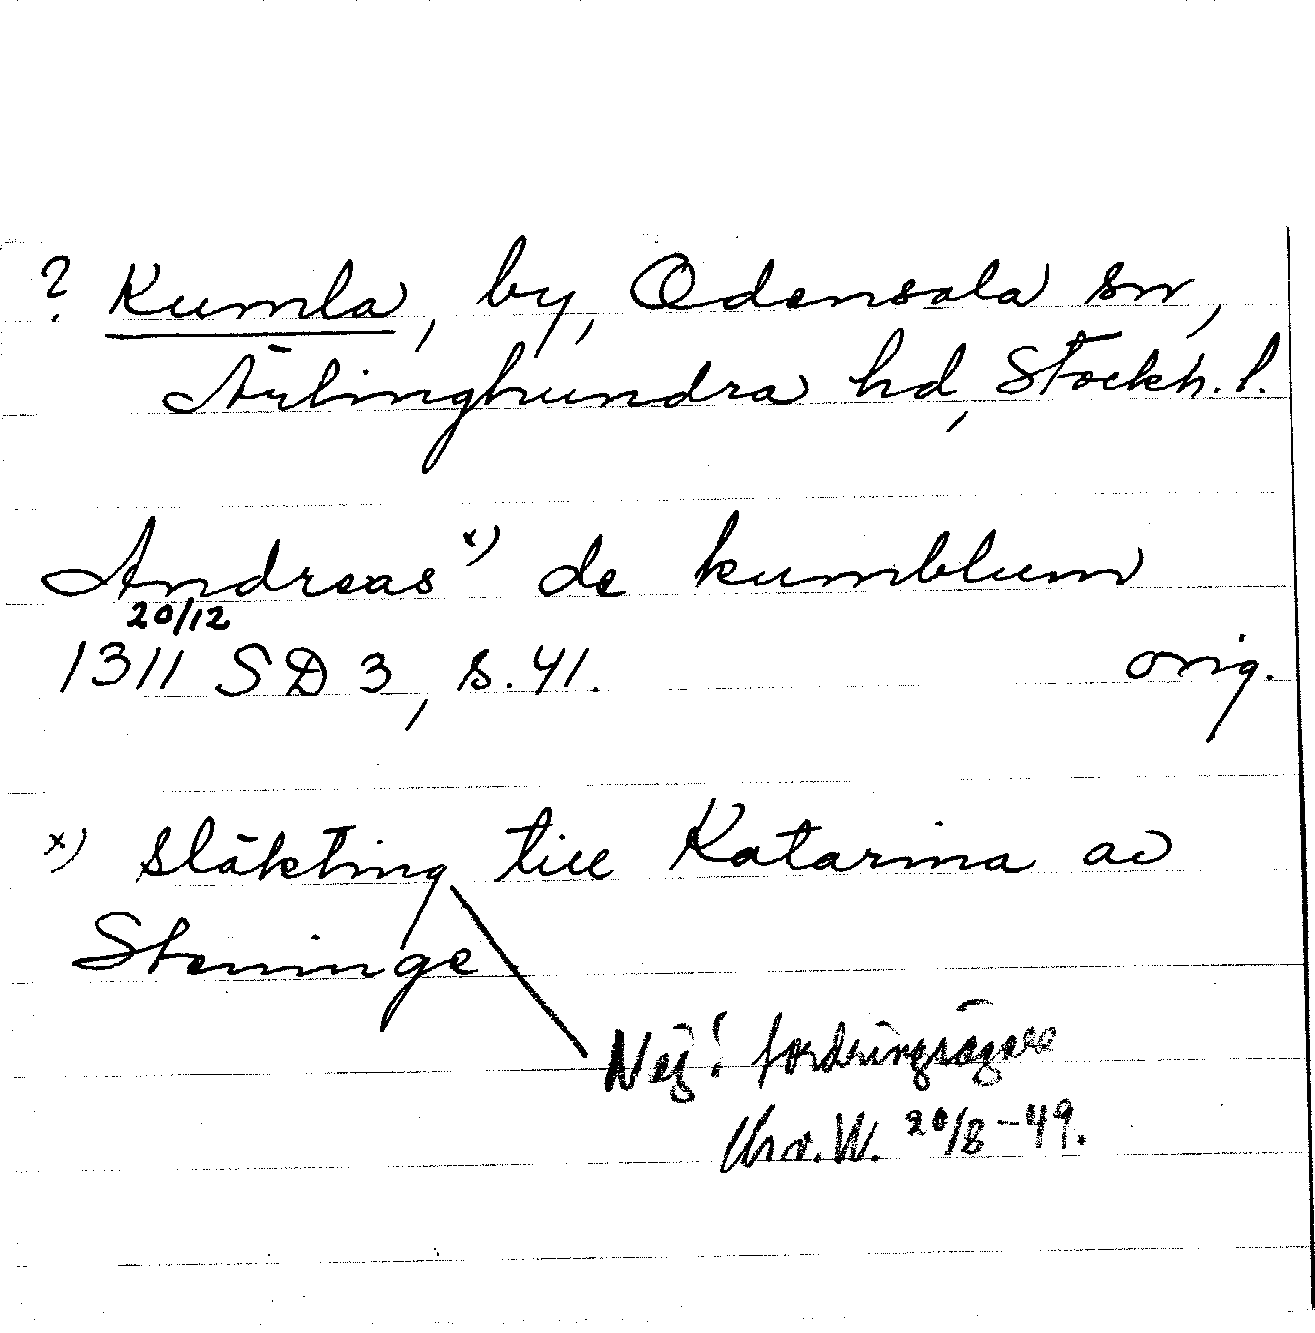 ? Kumla, by, Odensala sn,
Ärlinghundra hd, Stockh. l.
Andreas x) de kumblum
20/12
1311 SD 3, s. 41. orig.
x) släkting till Katarina av
Steninge
Nej! fordringsägare
Chr. W. 20/8-49.